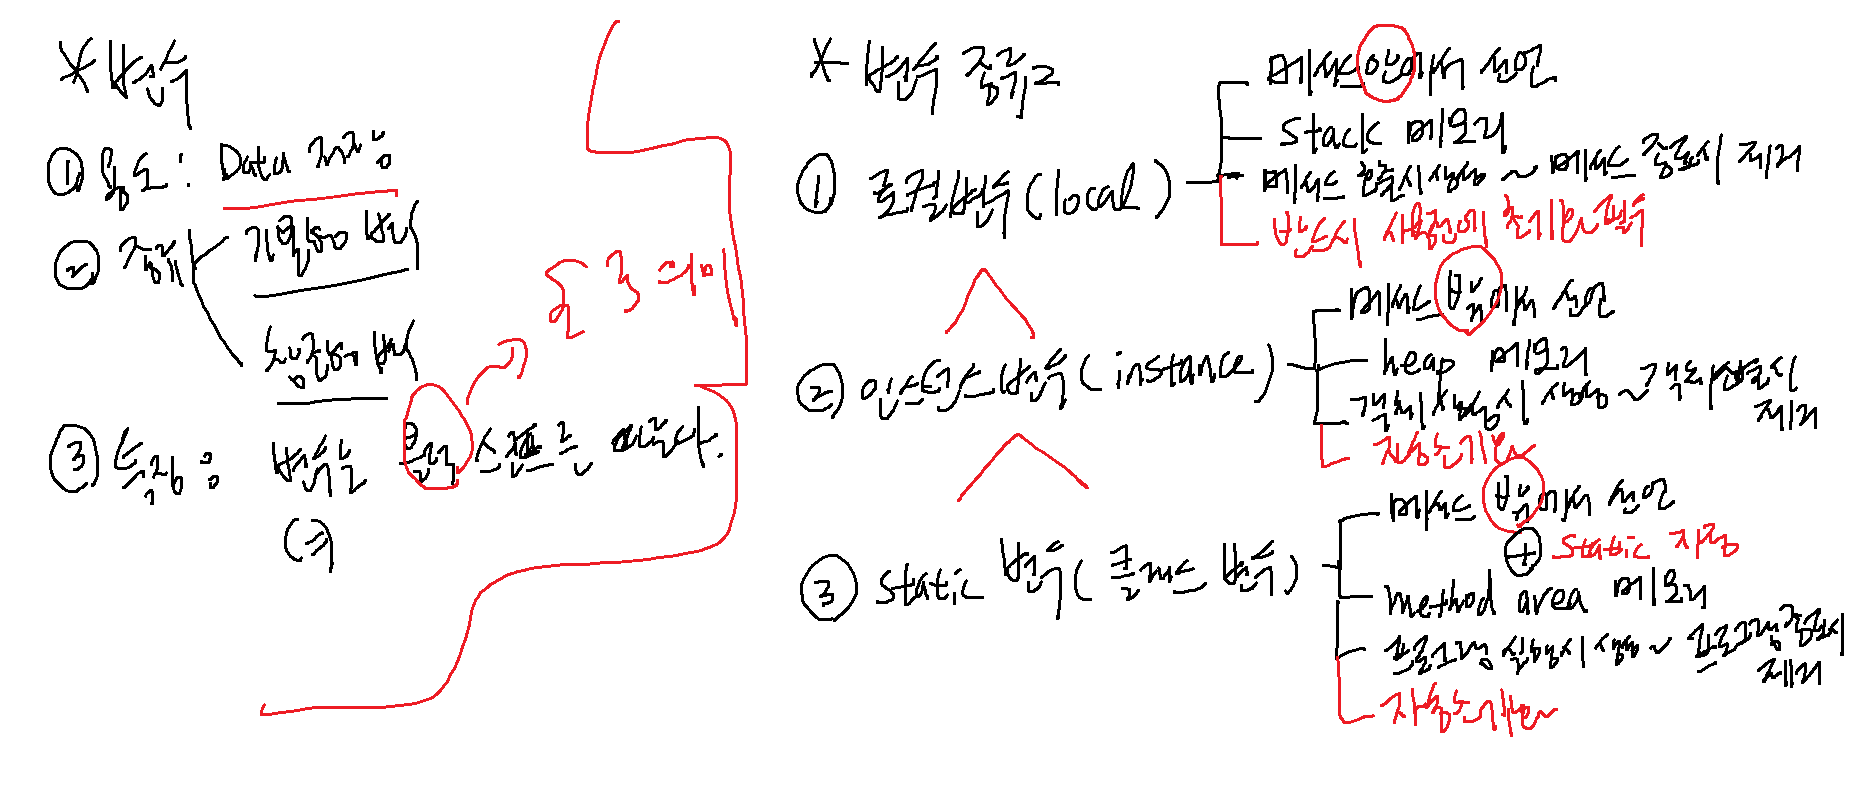 * 변수
① 용도 : Data 저장
② 종류 기본형 변수
참조형 변수
③ 특징 : 변수는 블럭 스코프를 따른다.
{ } 의미
* 변수 종류2
① 로컬변수 (local)
메서드 안에서 선언
stack 메모리
메서드 호출시 생성 ~ 메서드 종료시 제거
반드시 사용전에 초기화 필수
② 인스턴스 변수 (instance)
메서드 밖에서 선언
heap 메모리
객체 생성시 생성 ~ 객체 소멸시
제거
자동초기화
③ static 변수 (클래스 변수)
메서드 밖에서 선언
+ static 지정
method area 메모리
프로그램 실행시 생성 ~ 프로그램 종료시
제거
자동초기화